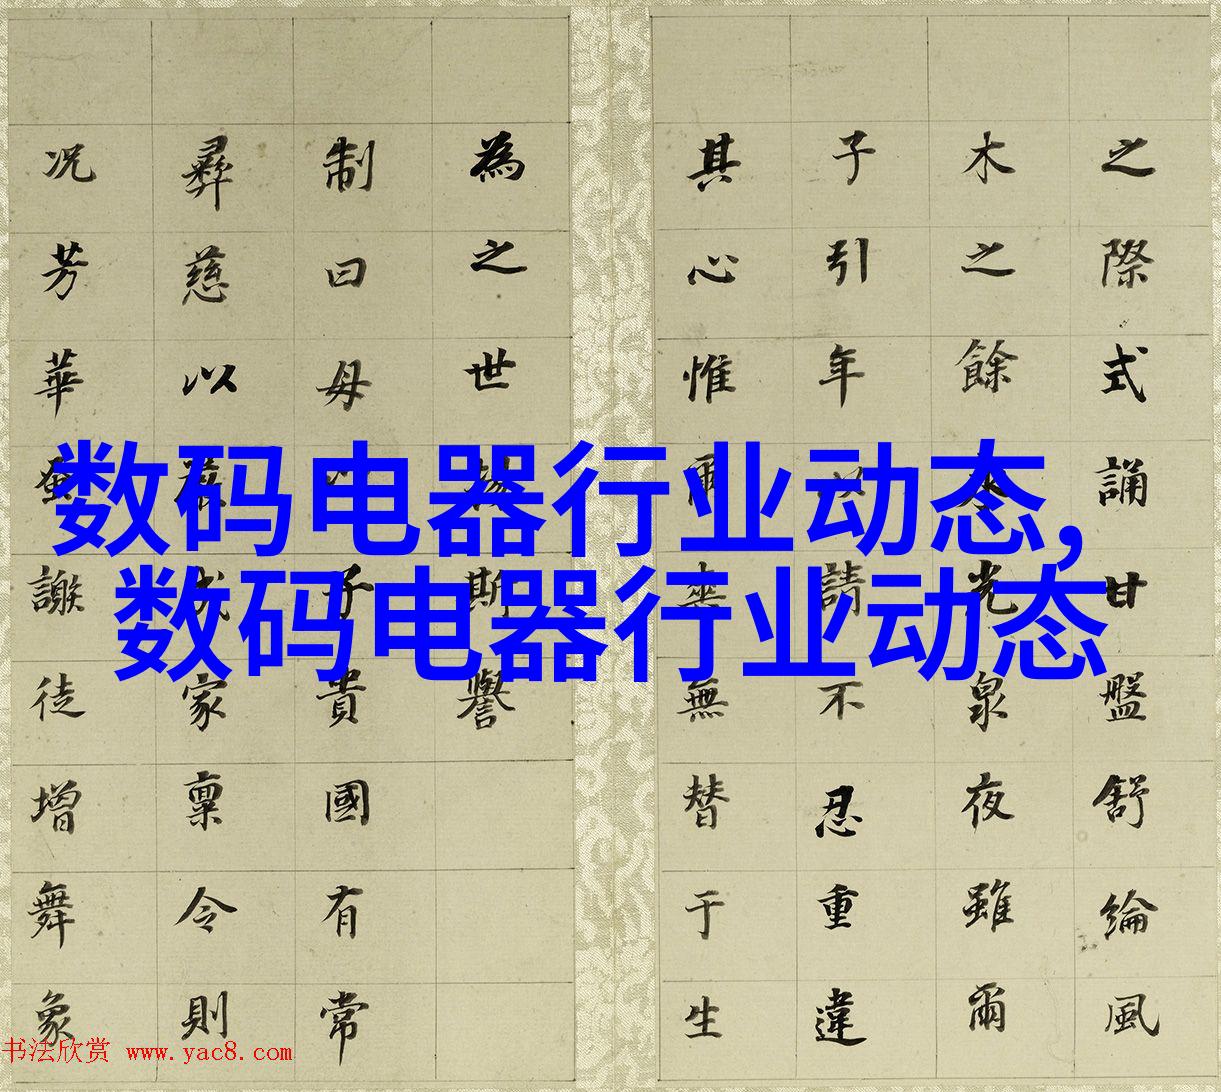 之際式誦甘盤舒綸風
木之餘光泉夜雖爾
子引年以請不忍重違
其心惟爾無替于生
為之世斯譽
制曰母以子貴國有常
彝慈以成家稟令則
况芳華蚤謝徒增舞象
数码电器行业动态,
数码电器行业动态
书法欣赏 www.yac8.com